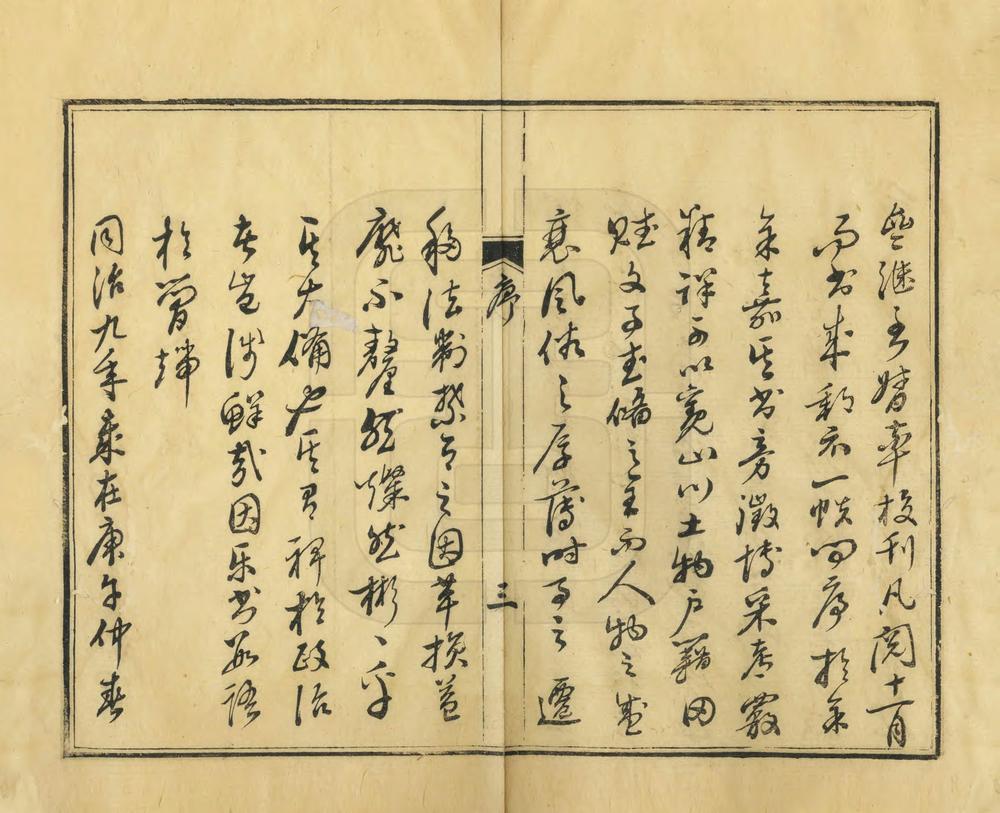 繼之督率校刊凡閱十一月
而書成郵示一帙問序於余
余嘉其書旁徵博采考覈
精詳可以覽山川土物戶籍田
賦文事武備之全而人物之盛
衰風俗之厚薄時事之遷
序
三
移法制禁令之因革損益
靡不釐然燦然彬彬乎
其大備也其有裨於政治
者豈淺鮮哉因樂書數語
於簡端
同治九年歲在庚午仲春